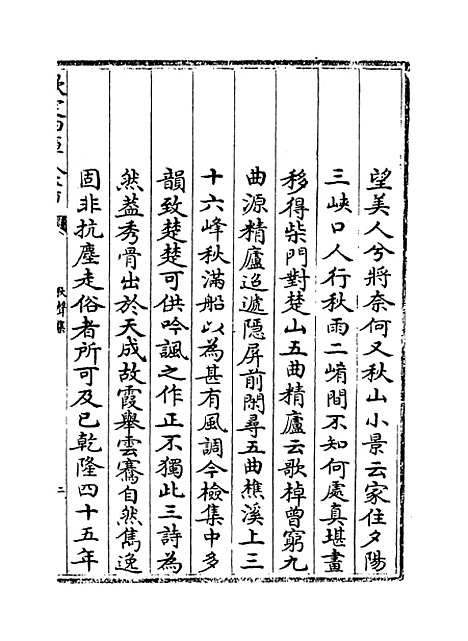 望美人兮將奈何又秋山小景云家住夕陽
三峽口人行秋雨二崤間不知何處真堪畫
移得柴門對楚山五曲精廬云歌棹曾窮九
曲源精廬迢遞隱屏前閑尋五曲樵溪上三
十六峰秋滿船以為甚有風調今檢集中多
韻致楚楚可供吟諷之作正不獨此三詩為
然葢秀骨出於天成故霞舉雲騫自然雋逸
固非抗塵走俗者所可及已乾隆四十五年
欽定四庫全書
秋聲集
二